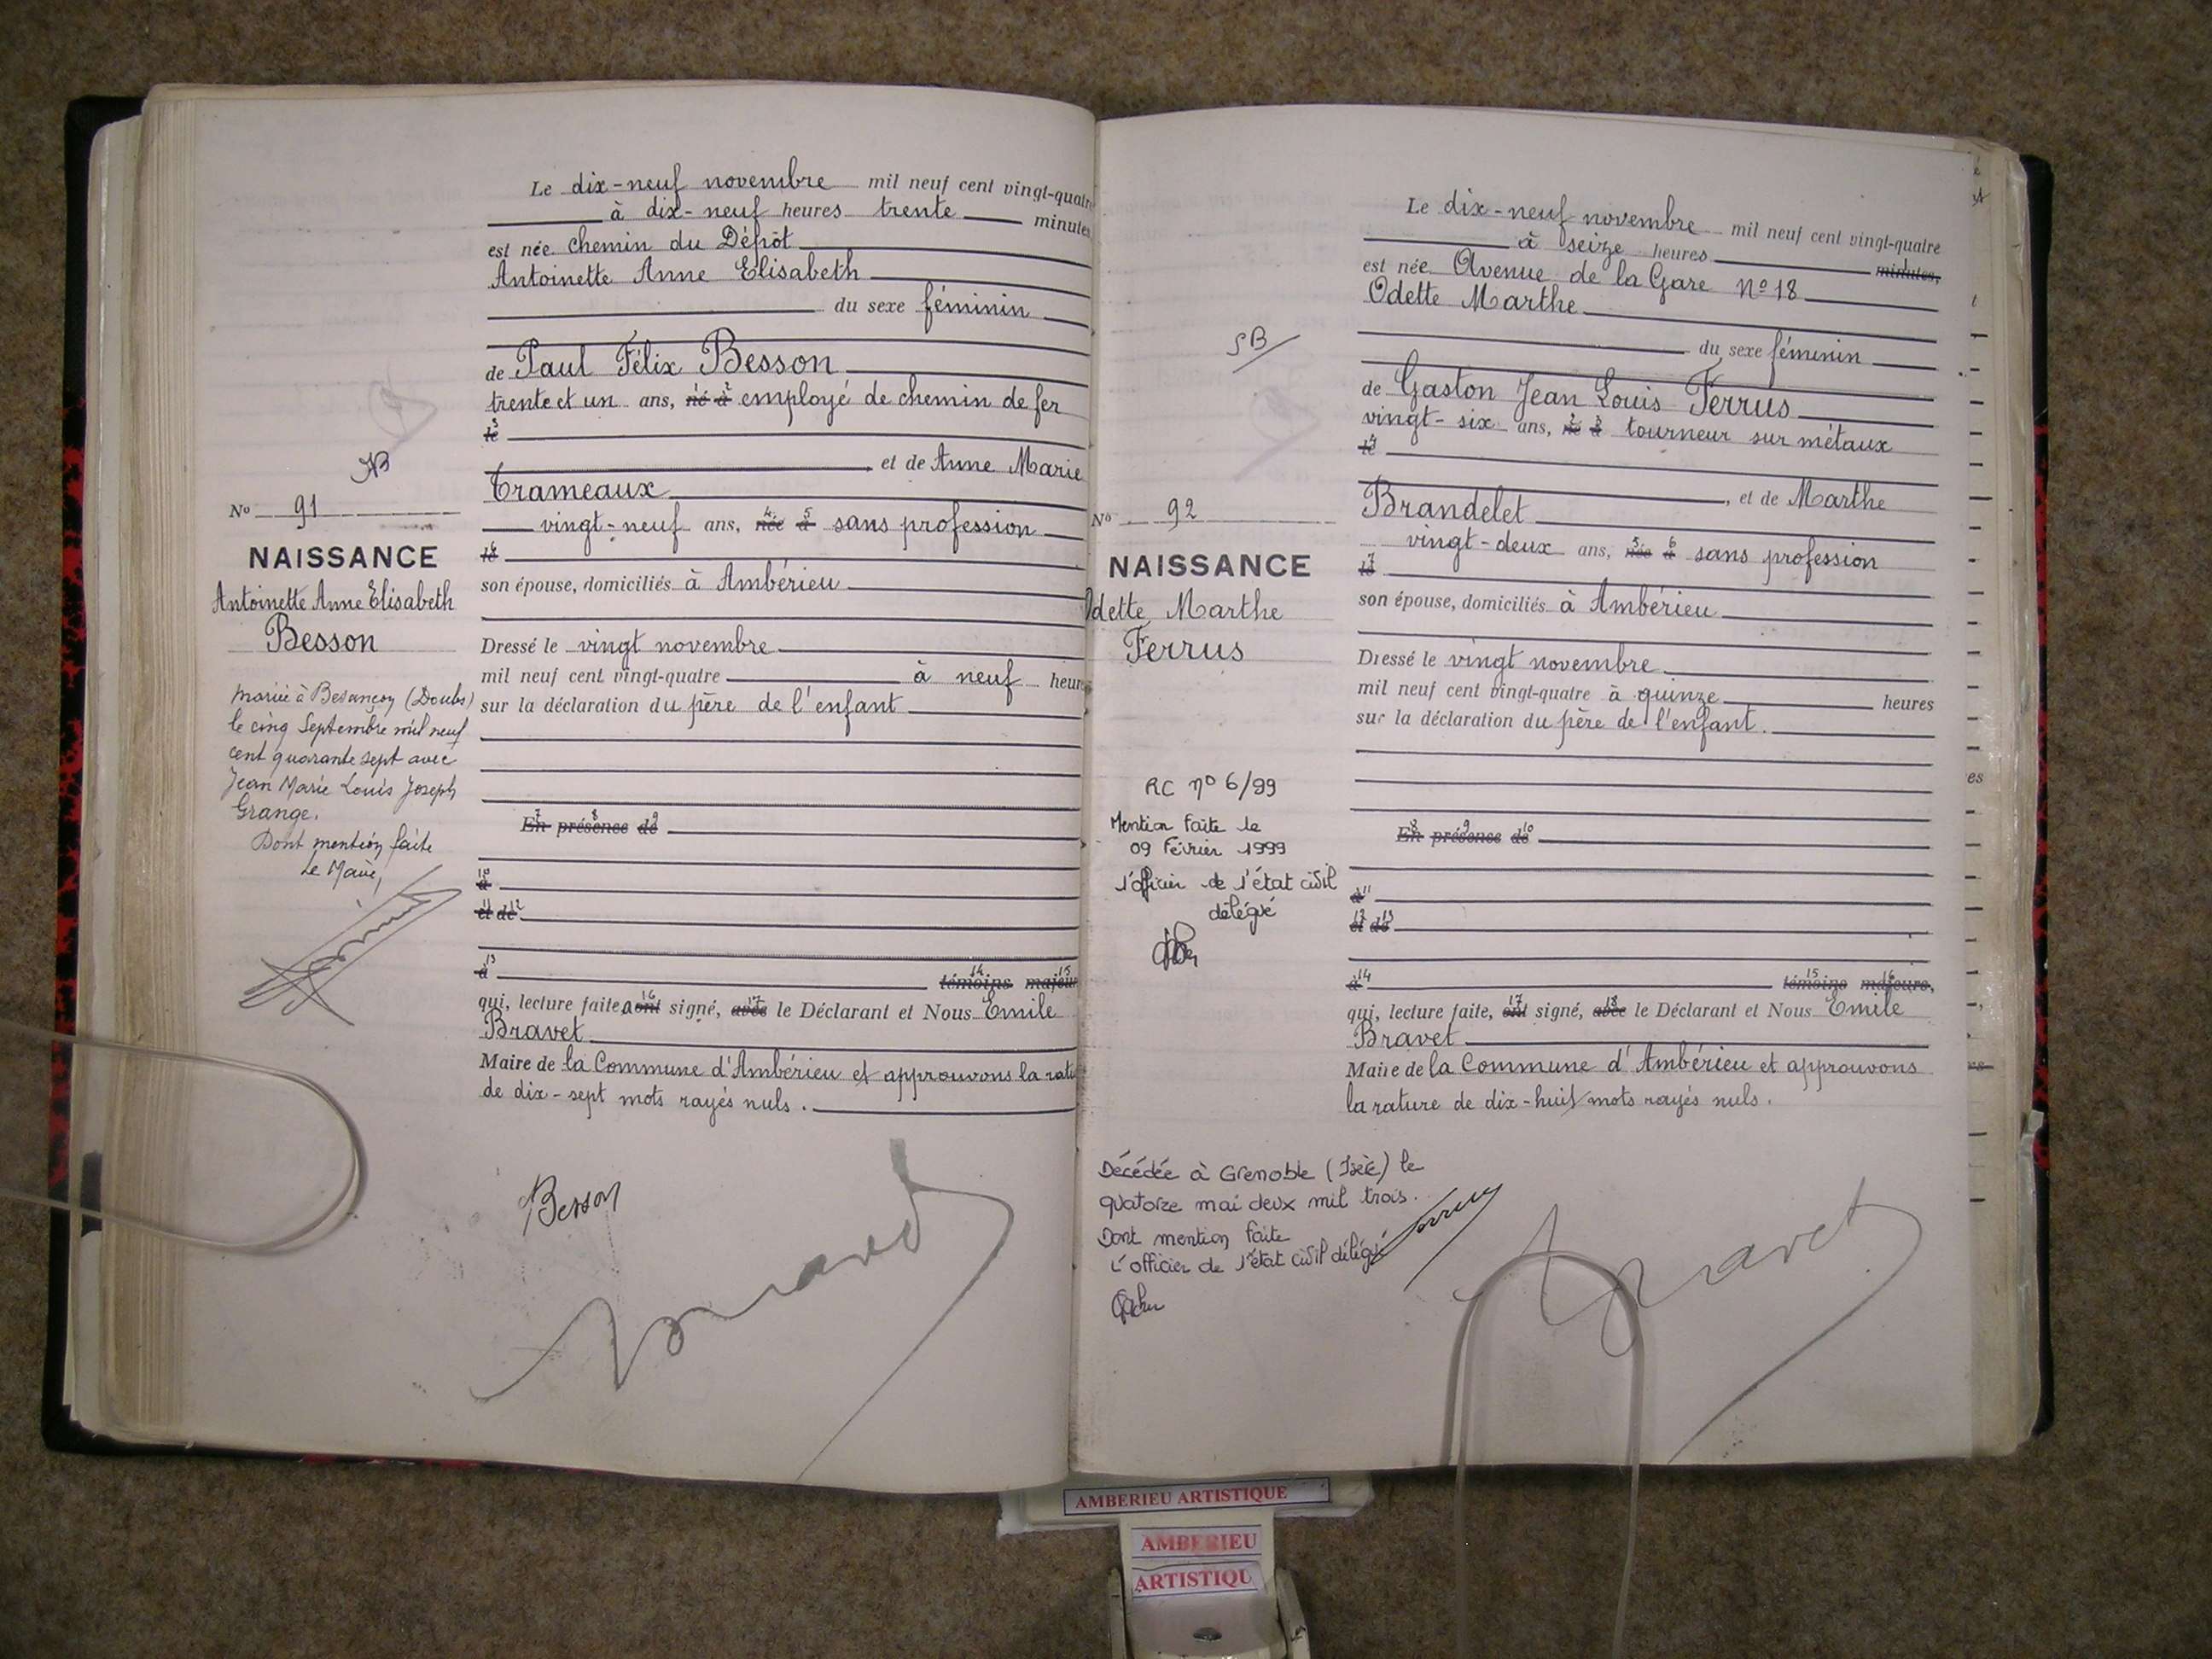 Le dix-neuf novembre mil neuf cent vingt-quatre
à dix-neuf heures trente minutes
est née chemin du Dépôt
Antoinette Anne Elisabeth
du sexe féminin
de Paul Félix Besson
trente et un ans, né à employé de chemin de fer
le
et de Anne Marie
Trameaux
vingt-neuf ans, née à sans profession
le
son épouse, domiciliés à Ambérieu
Dressé le vingt novembre
mil neuf cent vingt-quatre à neuf heures
sur la déclaration du père de l'enfant
En présence de
à
et de
à témoins majeurs
qui, lecture faite a ont signé, avec le Déclarant et Nous Emile
Bravet
Maire de la Commune d'Ambérieu et approuvons la
de dix-sept mots rayés nuls.
Besson
Bravet
No 91
NAISSANCE
Antoinette Anne Elisabeth
Besson
Mariée à Besançon (Doubs)
le cinq Septembre mil neuf
cent quarante sept avec
Jean Marie Louis Joseph
Grange.
Dont mention faite
Le Maire,
Le dix-neuf novembre mil neuf cent vingt-quatre
à seize heures minutes,
est née Avenue de la Gare No 18
Odette Marthe
du sexe féminin
de Gaston Jean Louis Ferrus
vingt-six ans, né à tourneur sur métaux
le
, et de Marthe
Brandelet
vingt-deux ans, née à sans profession
le
son épouse, domiciliés à Ambérieu
Dressé le vingt novembre
mil neuf cent vingt-quatre à quinze heures
sur la déclaration du père de l'enfant.
En présence de
à
et de
à témoins majeurs,
qui, lecture faite, ont signé, avec le Déclarant et Nous Emile
Bravet
Maire de la Commune d'Ambérieu et approuvons
la rature de dix-huit mots rayés nuls.
SB
No 92
NAISSANCE
Odette Marthe
Ferrus
RC no 6/99
Mention faite le
09 Février 1999
l'officier de l'état civil
délégué
Décédée à Grenoble (Isère) le
quatorze mai deux mil trois.
Dont mention faite
L'officier de l'état civil délégué
Ferrus
Bravet
AMBERIEU ARTISTIQUE
AMBERIEU
ARTISTIQU